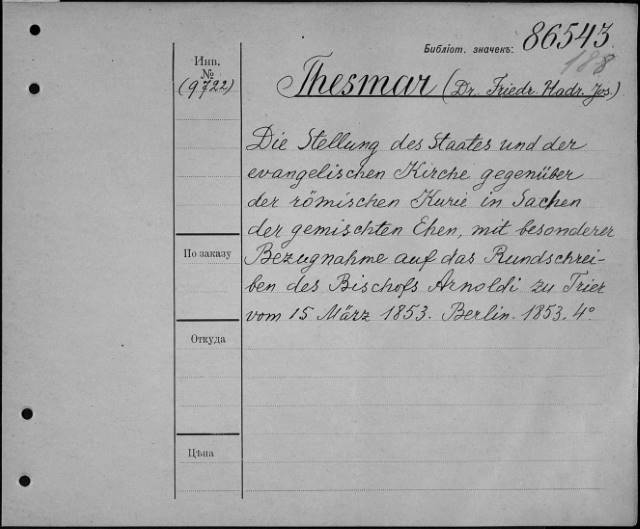 Библіот. значекъ: 86543
188
Инв.
№
(9722)
Thesmar (Dr. Friedr. Hadr. Jos.)
Die Stellung des Staates und der
evangelischen Kirche gegenüber
der römischen Kurie in Sachen
der gemischten Ehen, mit besonderer
Bezugnahme auf das Rundschrei-
ben des Bischofs Arnoldi zu Trier
vom 15 März 1853. Berlin. 1853. 4°
По заказу
Откуда
Цѣна